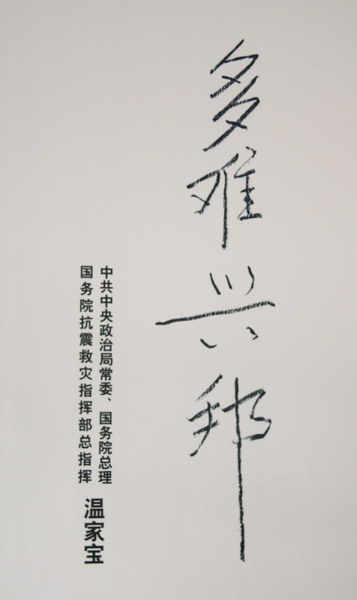 多难兴邦
中共中央政治局常委、国务院总理
国务院抗震救灾指挥部总指挥
温家宝